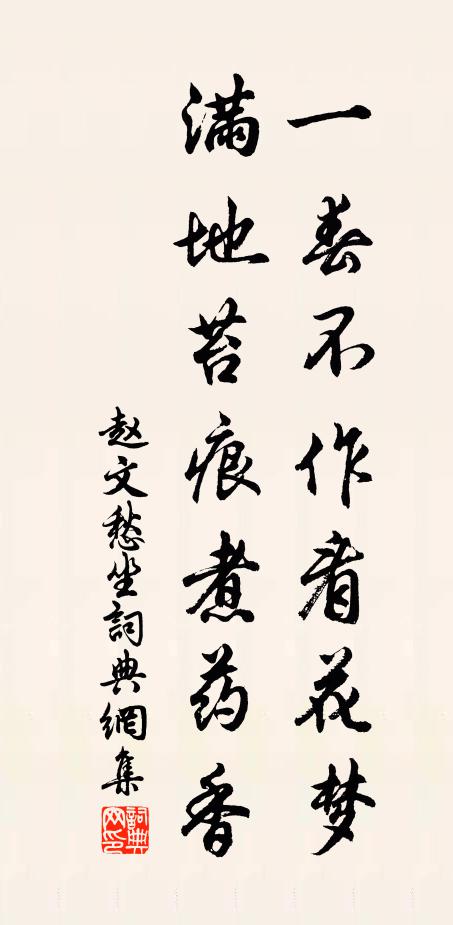 一春不作看花梦
满地苔痕煮药香
赵文愁坐詞典網集
詞典
网印